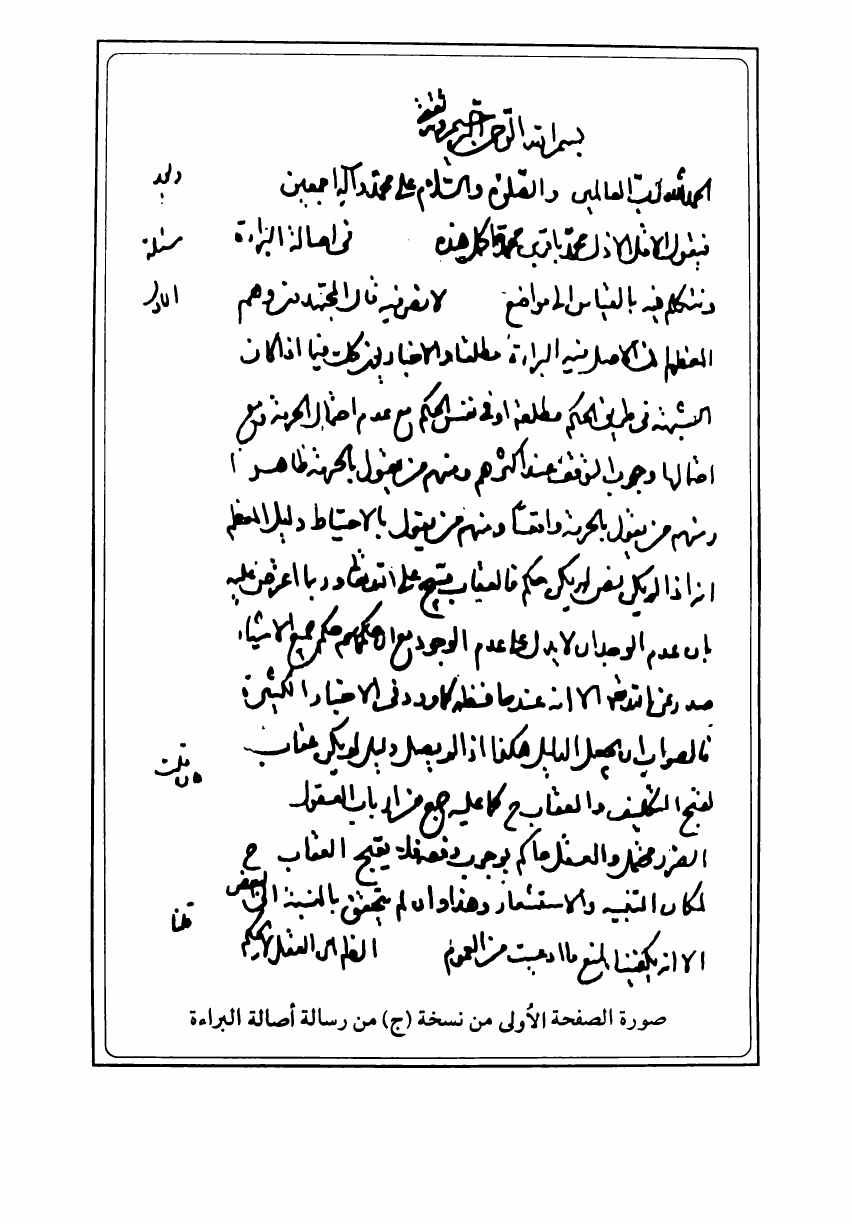 بسم الله الرحمن الرحيم وبه ثقتي
الحمد لله رب العالمين والصلوة والسلام على محمد وآله اجمعين
وبعد
فيقول الاقل الاذل محمد باقر بن محمد اكمل هذه في اصالة البراءة
مسئلة
ونتكلم فيه بالقياس الى مواضع لا نص فيه قال المجتهدين وهم
الاول
المعظم ان الاصل فيه البراءة مطلقا والاخباريون كك فيما اذا كان
الشبهة في طريق الحكم مطلقا او في نفس الحكم مع عدم احتمال الحرمة ومع
احتمالها وجوب التوقف عند اكثرهم ومنهم من يقول بالحرمة ظاهرا
ومنهم من يقول بالحرمة واقعا ومنهم من يقول بالاحتياط دليل المعظم
انه اذا لم يكن نص لم يكن حكم فالعقاب قبيح على الله تعالى وربما اعترض عليه
بان عدم الوجدان لا يدل على عدم الوجود مع ان حكم جميع الاشياء
صدر عن الله تعالى الا انه عند حافظه كما ورد في الاخبار الكثيرة
فالصواب ان يجعل الدليل هكذا اذا لم يصل دليل لم يكن عقاب
لقبح التكليف والعقاب ح كما عليه جمع من ارباب العقول
فان قلت
الضرر محتمل والعقل حاكم بوجوب دفعه فلا يقبح العقاب ح
لمكان التنبيه والاستشعار وهذا وان لم يتحقق بالنسبة الى البعض
الا انه يكفينا لمنع ما ادعيت من العموم الظاهر ان العقل لا يحكم
قلنا
صورة الصفحة الأولى من نسخة (ج) من رسالة أصالة البراءة